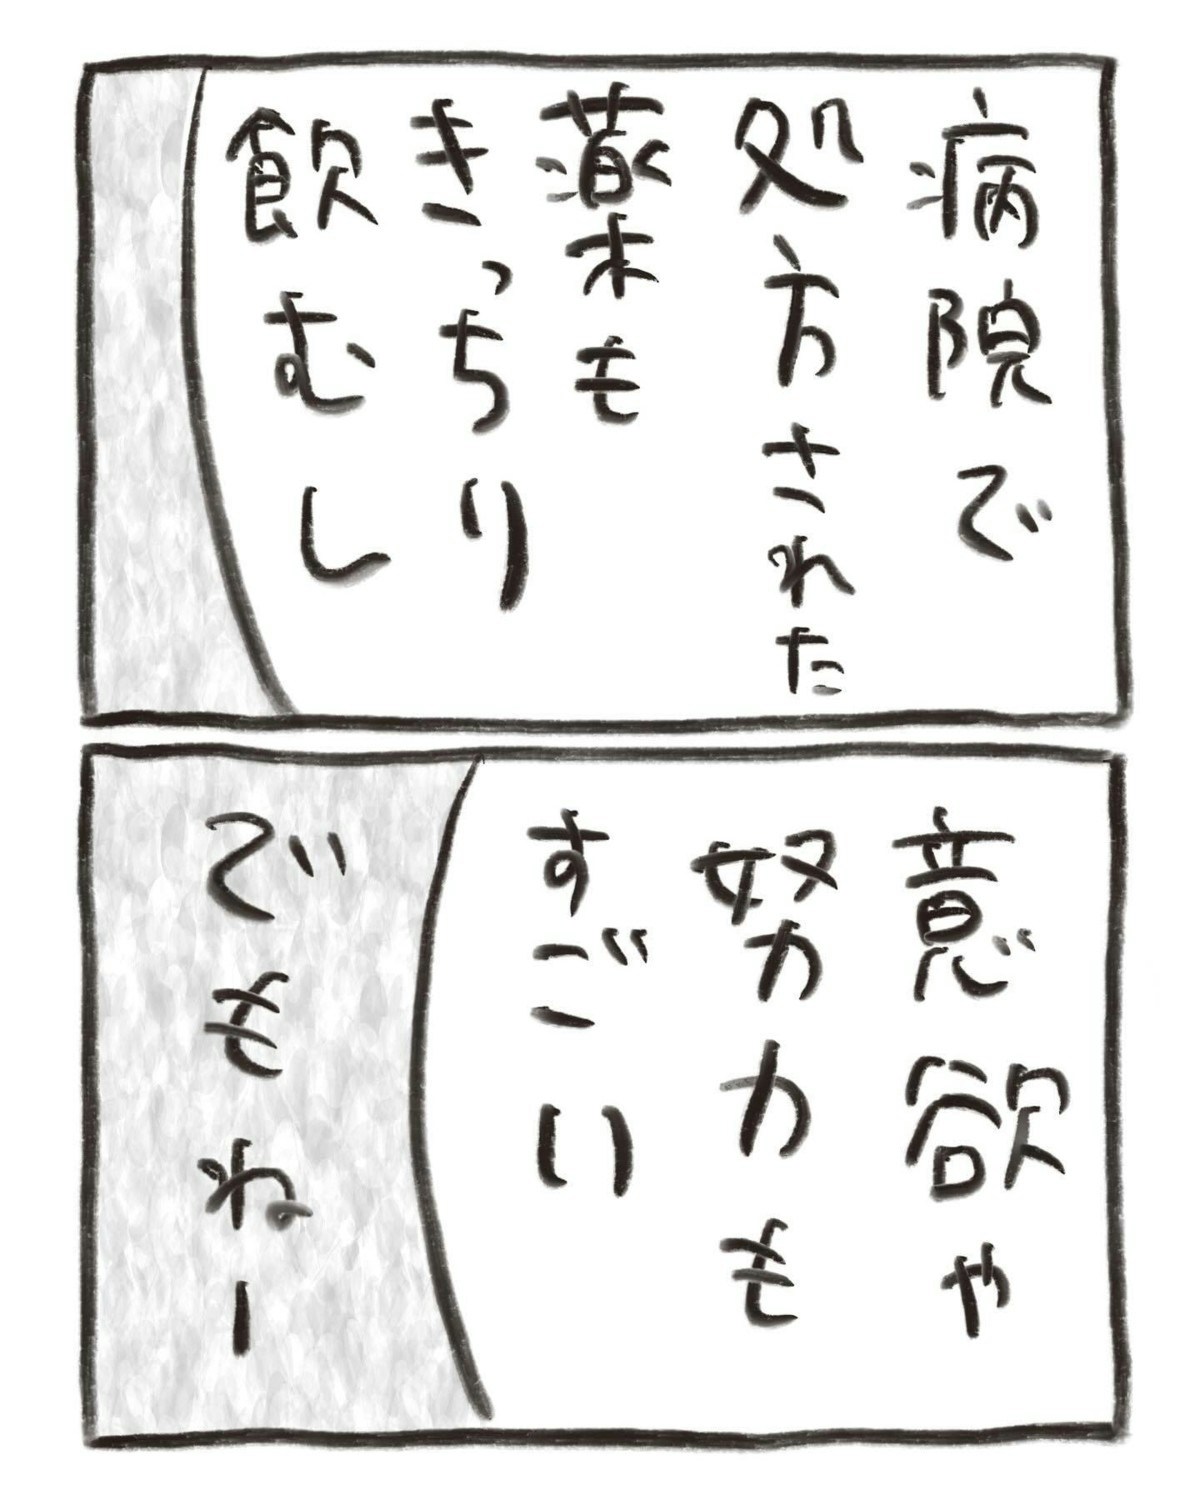 病院で
処方された
薬も
きっちり
飲むし
意欲や
努力も
すごい
でもねー